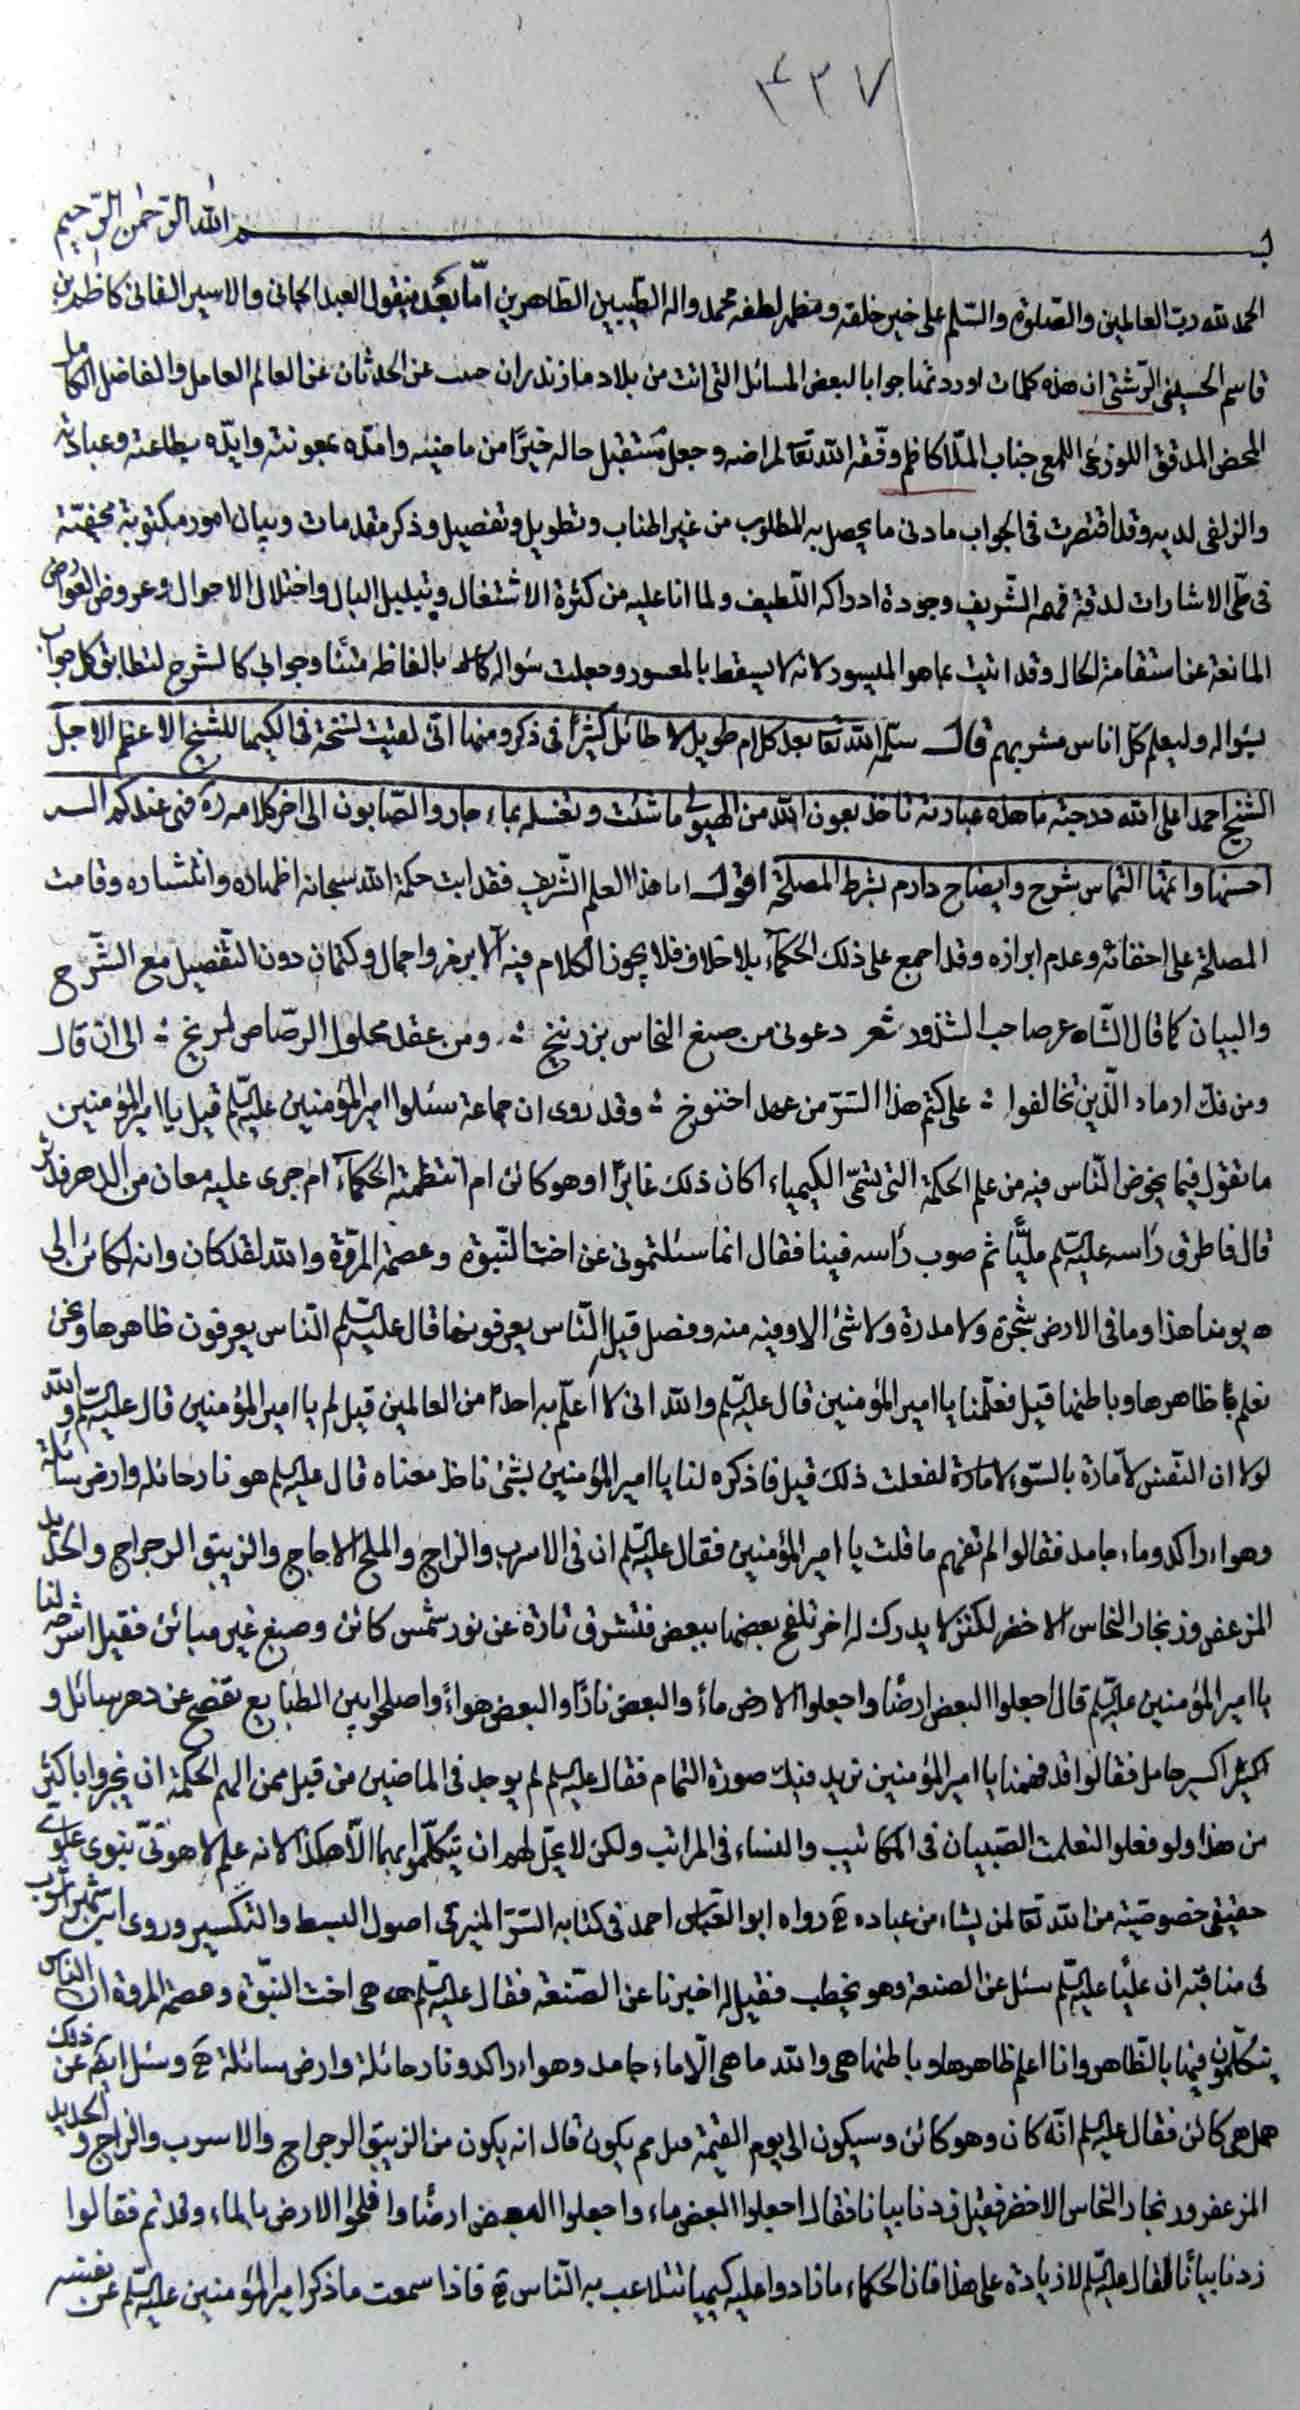 ٤٣٧
بسم الله الرّحمن الرّحيم
الحمد لله ربّ العالمين والصّلوة والسّلم على خير خلقه ومظهر لطفه محمد واله الطّيّبين الطّاهرين امّا بعد فيقول العبد الجانى والاسير الفانى كاظم بن
قاسم الحسينى الرّشتى ان هذه كلمات اوردتها جوابا لبعض المسائل التى اتت من بلاد مازندران صينت عن الحدثان عن العالم العامل والفاضل الكامل
المحض المدقق اللوزعى اللمعى جناب الملّا كاظم وفّقه الله تعا لمراضه وجعل مستقبل حاله خيرًا من ماضيه وامدّه بمعونته وايّده بطاعته وعبادته
والزلفى لديه وقد اقتصرت فى الجواب مادنى ما يحصل به المطلوب من غير اطناب وتطويل وتفصيل وذكر مقدمات وبيان امور مكتوبة مخفيّة
فى طىّ الاشارات لدقة فهمه الشّريف وجودة ادراكه اللّطيف ولما انا عليه من كثرة الاشتغال وتبلبل البال واختلال الاحوال وعروض العوارض
المانعة عن استقامة الحال وقد اتيت بما هو الميسور لانه لا يسقط بالمعسور وجعلت سؤاله كاملا بالفاظه متنًا وجوابى كالشرح لتطابق كل جواب
بسؤاله وليعلم كلّ اناس مشربهم قال سلّمه الله تعا بعد كلام طويل لا طائل كثيرًا فى ذكره ومنها انّى لقيت نسخة فى الكيميا للشيخ الاعظم الاجل
الشيخ احمد اعلى الله درجته ما هذه عبارته تاخذ بعون الله من الهيولى ما شئت وتغسله بماء حار والصّابون الى اخر كلامه ره فمن عندكم السر
احسنها واتمّها التماس بشرح وايضاح دارم بشرط المصلحة اقول اما هذا العلم الشّريف فقد ابت حكمة الله سبحانه اظهاره وانتشاره وقامت
المصلحة على اخفائه وعدم ابرازه وقد اجمع على ذلك الحكماء بلا خلاف فلا يجوز الكلام فيه الّا برمز واجمال وكتمان دون التّفصيل مع الشّرح
والبيان كما قال الشّاعر صاحب الشذور شعر دعونى من صبغ النحاس بزرنيخ ومن عقد محلول الرصّاص لمريخ الى ان قال
ومن فك ارماد الّذين تحالفوا على كتم هذا السّرّ من عهد اخنوخ وقد روى ان جماعة سئلوا امير المؤمنين عليه السّلم قيل يا امير المؤمنين
ما تقول فيما يخوض النّاس فيه من علم الحكمة التى تسمّى الكيمياء اكان ذلك غابرًا او هو كائن ام انتظمته الحكماء ام جرى عليه معان من الدهر فدثر
قال فاطرق راسه عليه السّلم مليًّا ثم صوب راسه فينا فقال انما سئلتمونى عن اخت النّبوّة وعصمة المروّة والله لقد كان وانه لكائن الى
يومنا هذا وما فى الارض شجرة ولا مدرة ولا شئ الا وفيه منه وفصل قيل النّاس يعرفونها قال عليه السّلم النّاس يعرفون ظاهرها ونحن
نعلم ظاهرها وباطنها قيل فعلّمنا يا امير المؤمنين قال عليه السّلم والله انى لا اعلّم به احدًا من العالمين قيل لم يا امير المؤمنين قال عليه السّلم والله
لولا ان النّفس لامّارة بالسّوء لفعلت ذلك قيل فاذكره لنا يا امير المؤمنين بشئ ناخذ معناه قال عليه السلم هو نار حائلة وارض سائلة
وهواء راكد وماء جامد فقالوا لم نفهم ما قلت يا امير المؤمنين فقال عليه السّلم ان فى الاسرب والزاج والملح الاجاج والزيبق الرجراج والحديد
المزعفر وزنجار النحاس الاخضر لكنز لا يدرك له اخر تلقح بعضها ببعض فتشرق تارة عن نور شمس كائن وصبغ غير مبائن فقيل اشرحه لنا
يا امير المؤمنين عليه السّلم قال اجعلوا البعض ارضًا واجعلوا الارض ماء والبعض نارًا والبعض هواءً واصلحوا بين الطبايع تفضح عن دهن سائل و
اكسير حامل فقالوا قد فهمنا يا امير المؤمنين نريد منك صورة التمام فقال عليه السلم لم يوجد فى الماضين من قبل ممن الهم الحكمة ان يخبروا باكثر
من هذا ولو فعلوا لتعلمت الصّبيان فى المكاتيب والنساء فى المراتب ولكن لا يحلّ لهم ان يتكلّموا بها الّا هكذا لانه علم لاهوتىّ نبوى علوىّ
حقيقى خصوصيّة من الله تعا لمن يشاء من عباده رواه ابو العبّاس احمد فى كتابه السّرّ المنير فى اصول البسط والتكسير وروى ابن شهر اشوب
فى مناقبه ان عليًّا عليه السّلم سئل عن الصنعة وهو يخطب فقيل له اخبرنا عن الصّنعة فقال عليه السّلم هى اخت النّبوّة وعصمة المروة ان النّاس
يتكلّمون فيها بالظّاهر وانا اعلم ظاهرها وباطنها هى والله ما هى الّا ماء جامد وهواء راكد ونار حائلة وارض سائلة وسئل ايضا عن ذلك
هل هى كائن فقال عليه السلم انّه كان وهو كائن وسيكون الى يوم القيمة قيل مم يكون قال انه يكون من الزيبق الرجراج والاسرب والزاج والحديد
المزعفر وزنجار النحاس الاخضر فقيل زدنا بيانا فقال اجعلوا البعض ماء واجعلوا البعض ارضًا وافلحوا الارض بالماء وقد تم فقالوا
زدنا بيانًا فقال عليه السّلم لا زيادة على هذا فان الحكماء ما زادوا عليه كيما يتلاعب به النّاس فاذا سمعت ما ذكر امير المؤمنين عليه السّلم عن نفسه